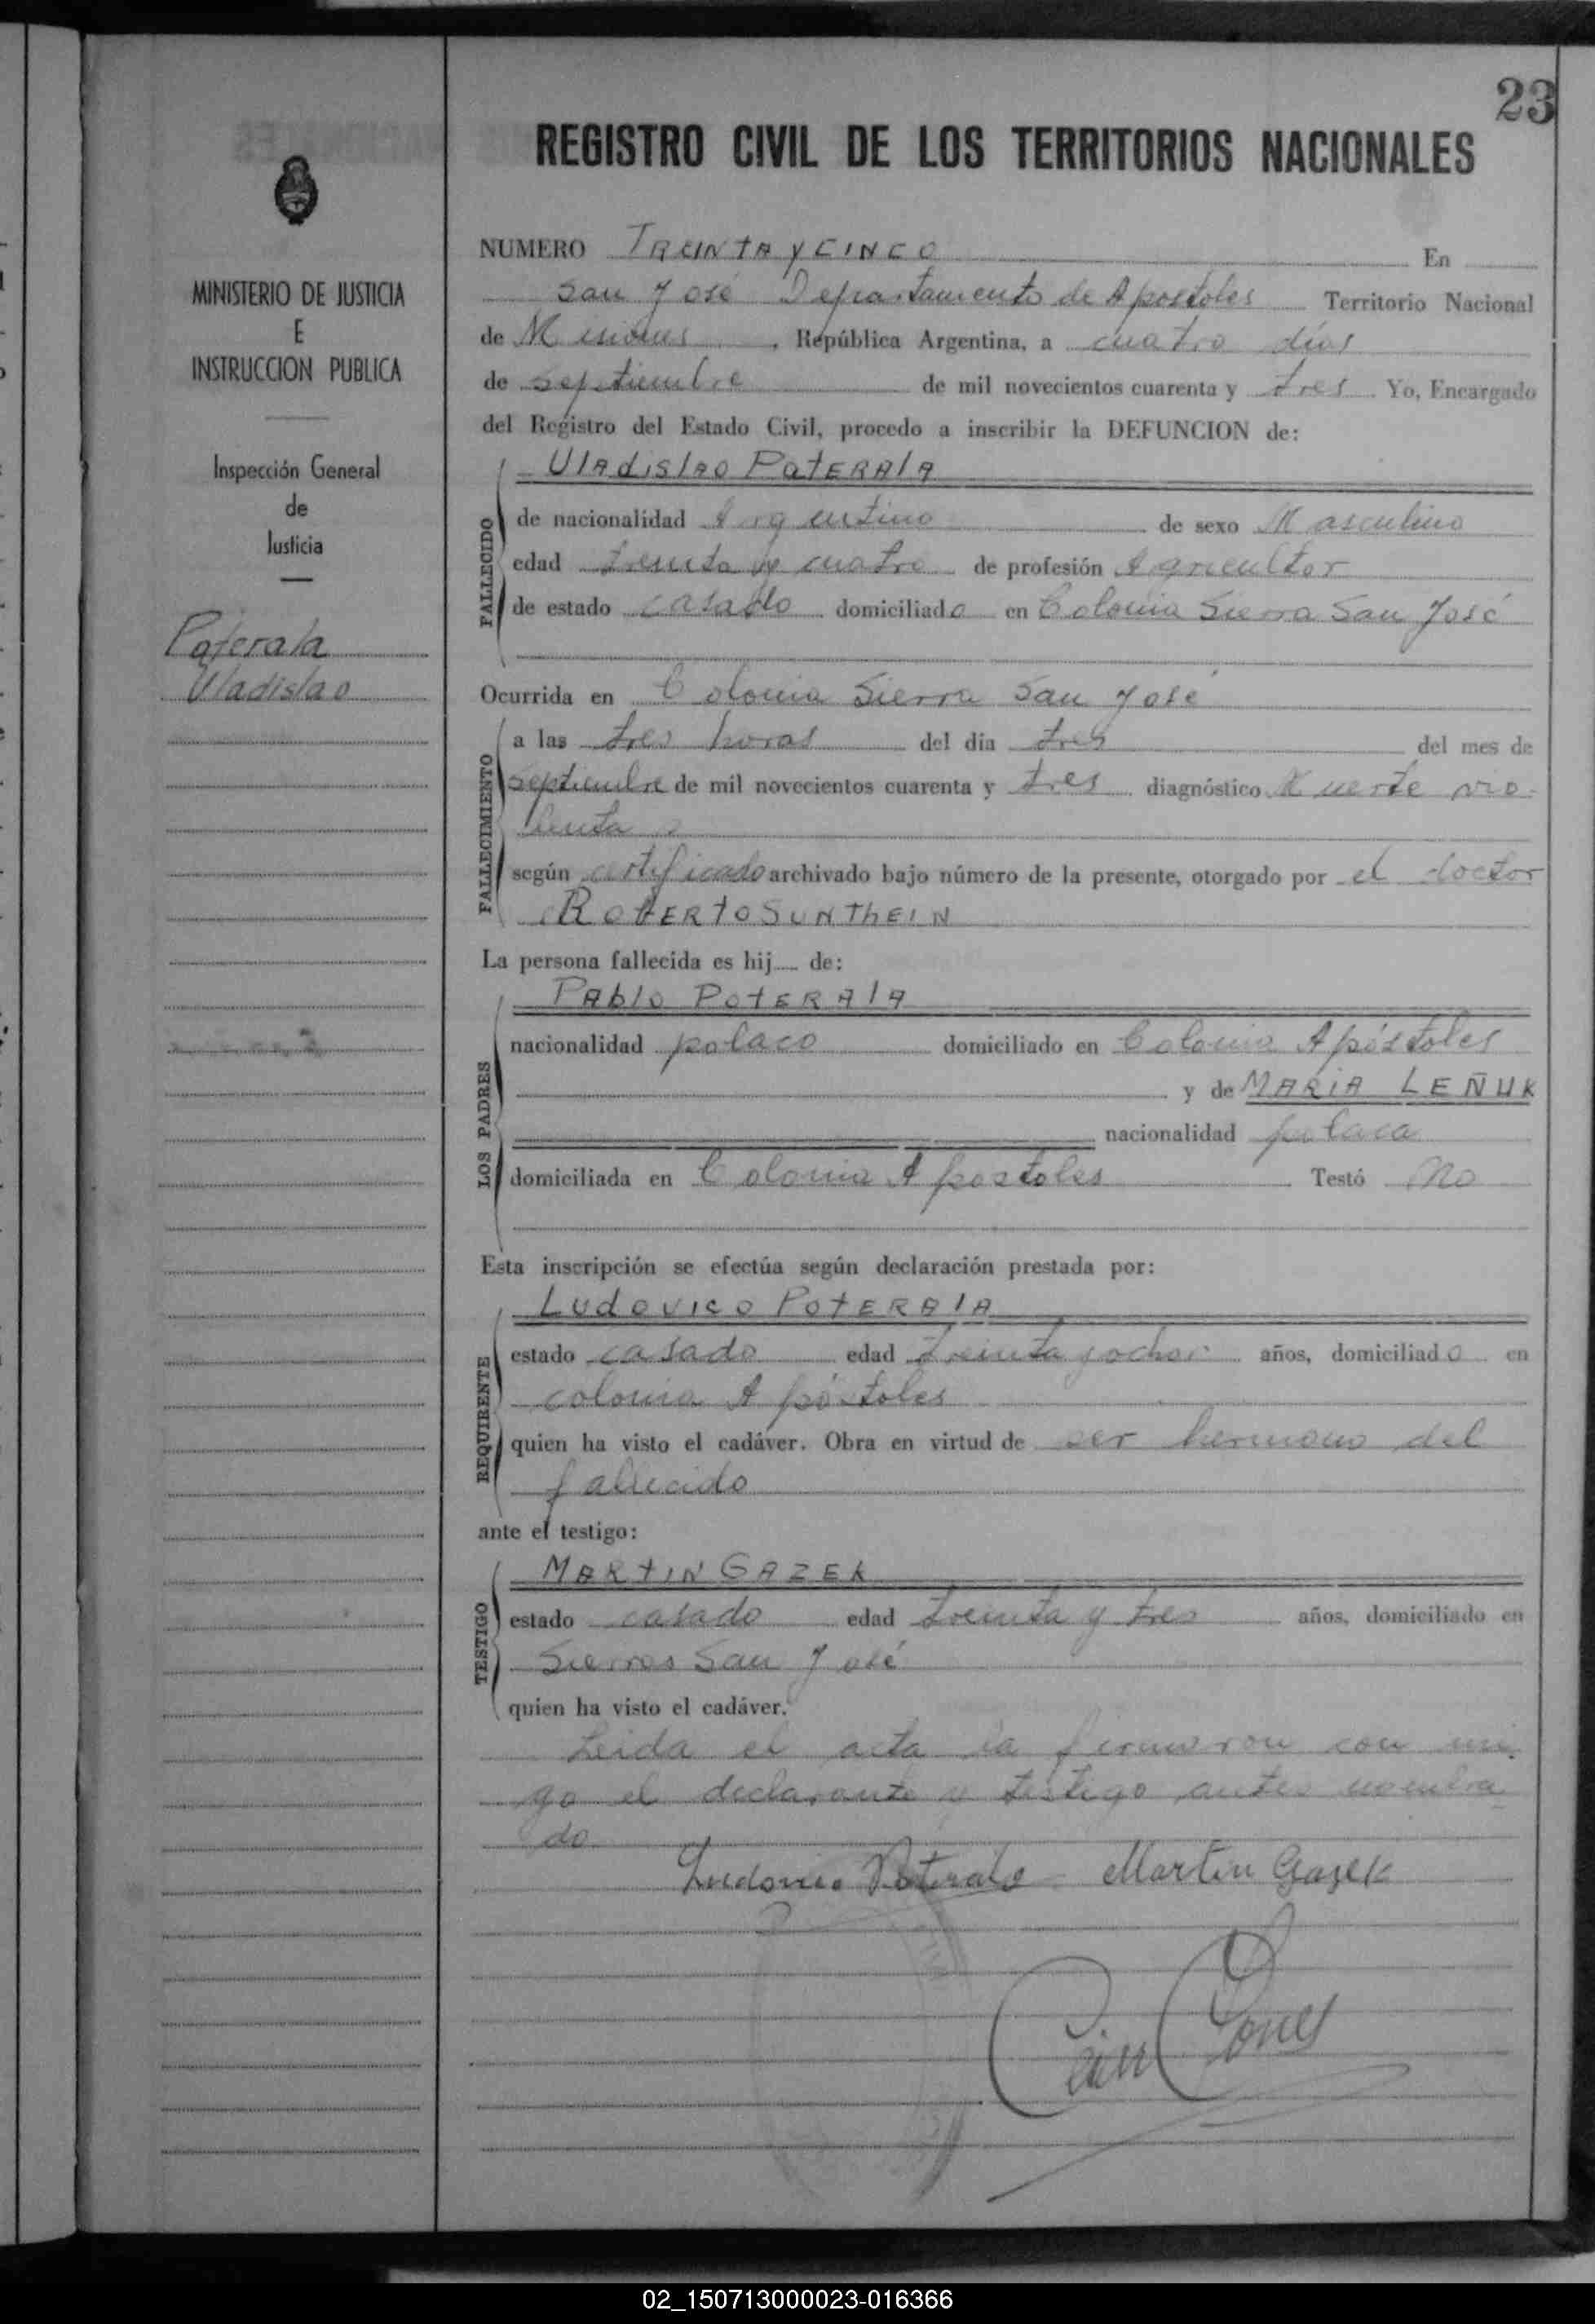 23
REGISTRO CIVIL DE LOS TERRITORIOS NACIONALES
MINISTERIO DE JUSTICIA
E
INSTRUCCION PUBLICA
Inspección General
de
Justicia
Poterala
Vladislao
NUMERO Treinta y cinco En
San José Departamento de Apostoles Territorio Nacional
de Misiones, República Argentina, a cuatro días
de Septiembre de mil novecientos cuarenta y tres. Yo, Encargado
del Registro del Estado Civil, procedo a inscribir la DEFUNCION de:
Vladislao Poterala
FALLECIDO
de nacionalidad Argentino de sexo Masculino
edad treinta y cuatro de profesión Agricultor
de estado casado domiciliado en Colonia Sierra San José
Ocurrida en Colonia Sierra San José
FALLECIMIENTO
a las tres horas del día tres del mes de
Septiembre de mil novecientos cuarenta y tres diagnóstico Muerte vio-
lenta
según certificado archivado bajo número de la presente, otorgado por el doctor
Roberto Sunthein
La persona fallecida es hij... de:
LOS PADRES
Pablo Poterala
nacionalidad polaco domiciliado en Colonia Apóstoles
y de MARIA LEÑUK
nacionalidad polaca
domiciliada en Colonia Apostoles Testó No
Esta inscripción se efectúa según declaración prestada por:
REQUIRENTE
Ludovico Poterala
estado casado edad treinta y ocho años, domiciliado en
colonia Apóstoles
quien ha visto el cadáver. Obra en virtud de ser hermano del
fallecido
ante el testigo:
TESTIGO
MARTIN GAZEK
estado casado edad treinta y tres años, domiciliado en
Sierras San José
quien ha visto el cadáver.
Leida el acta la firmaron con mi-
go el declarante y testigo antes nombra-
do
Ludovico Poterala Martin Gazek
02_150713000023-016366